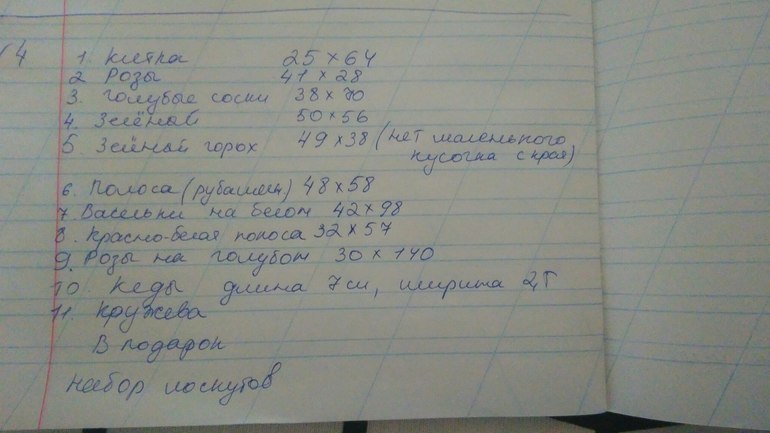 14
1. Клетка 25×64
2 Розы 41×28
3. Голубые соски 38×70
4. Зелёный 50×56
5 Зелёный горох 49×38 (нет маленького
кусочка с края)
6. Полоса (рубашечн) 48×58
7. Васельки на белом 42×98
8. Красно-белая полоса 32×57
9. Розы на голубом 30×140
10. Кеды длина 7см, ширина
11. Кружева
В подарок
набор лоскутов